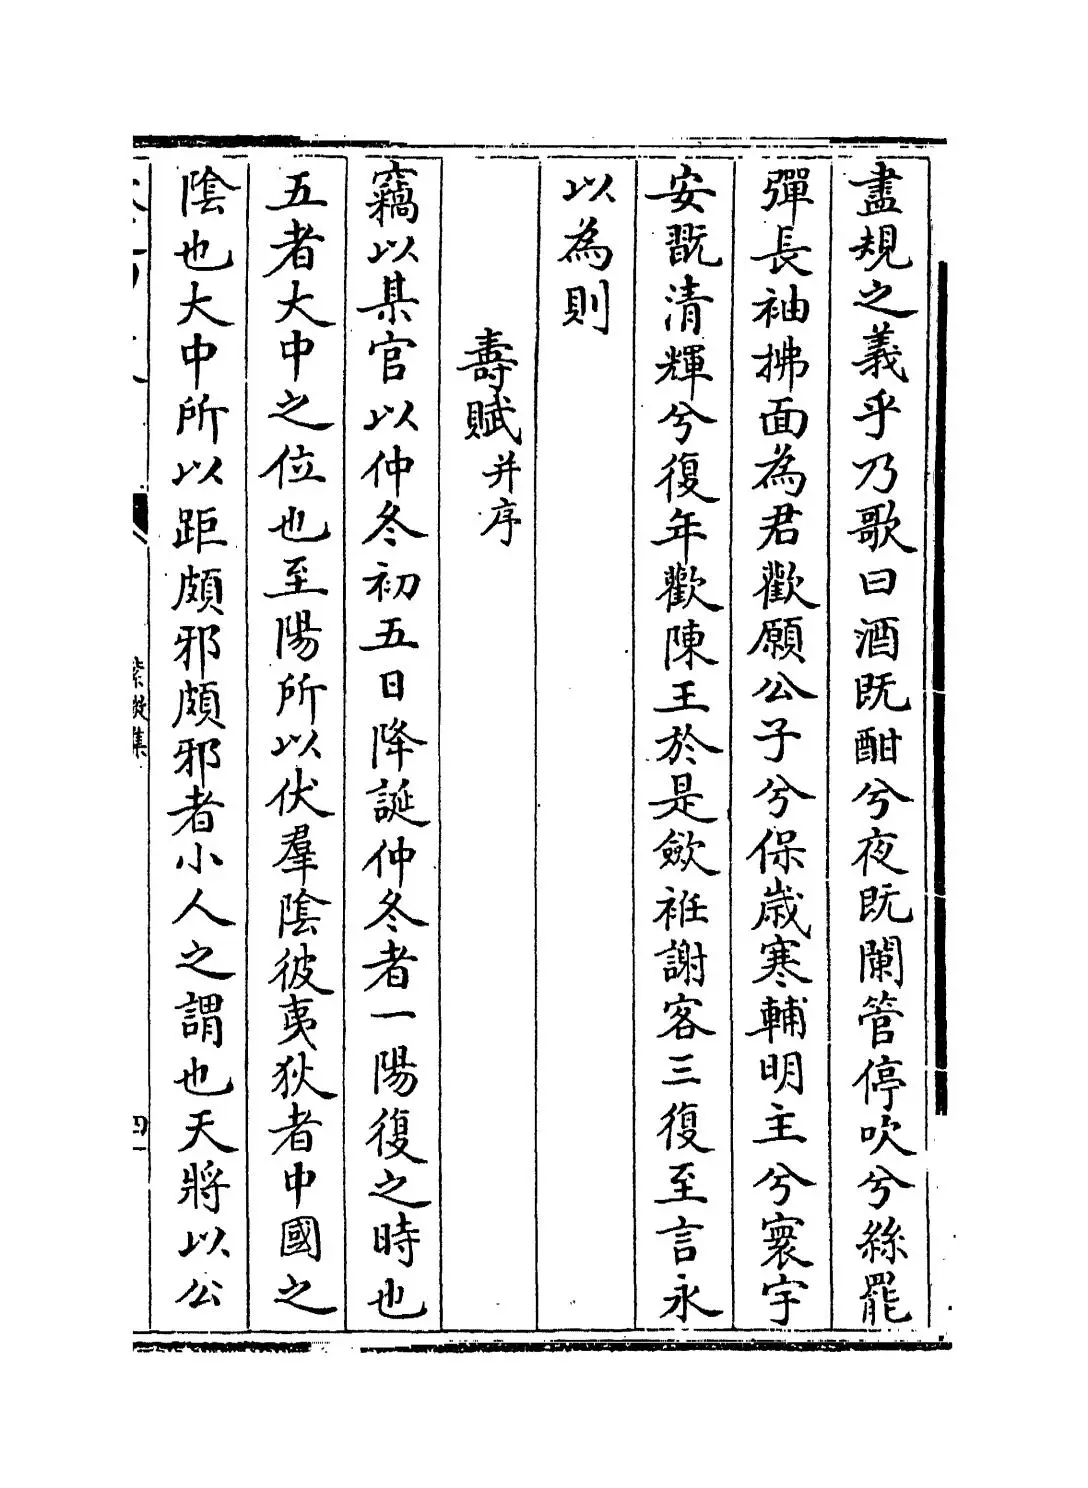 盡規之義乎乃歌曰酒既酣兮夜既闌管停吹兮絲罷
彈長袖拂面為君歡願公子兮保歲寒輔明主兮寰宇
安翫清輝兮復年歡陳王於是斂袵謝客三復至言永
以為則
壽賦并序
竊以某官以仲冬初五日降誕仲冬者一陽復之時也
五者大中之位也至陽所以伏羣陰彼夷狄者中國之
陰也大中所以距頗邪頗邪者小人之謂也天將以公
紫微集
四